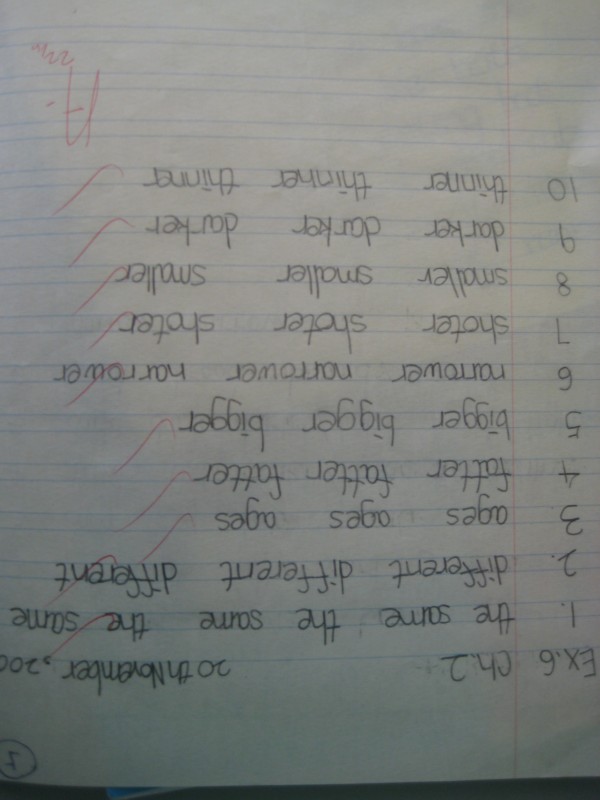 Ex.6 Ch.2 20thNovember, 200
1. the same the same the same
2. different different different
3. ages ages ages
4 fatter fatter fatter
5 bigger bigger bigger
6 narrower narrower narrower
7 shoter shoter shoter
8 smaller smaller smaller
9 darker darker darker
10 thinner thinner thinner
A-